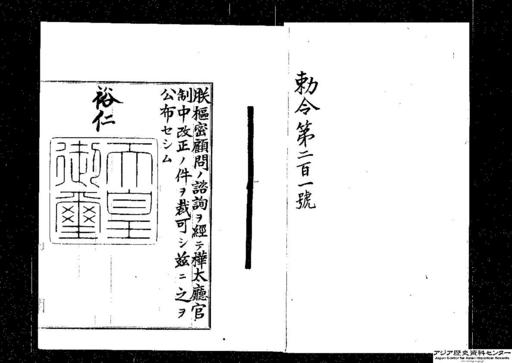 勅令第二百一號
朕樞密顧問ノ諮詢ヲ經テ樺太廳官
制中改正ノ件ヲ裁可シ茲ニ之ヲ
公布セシム
裕仁
天皇
御璽
アジア歴史資料センター
Japan Center for Asian Historical Records